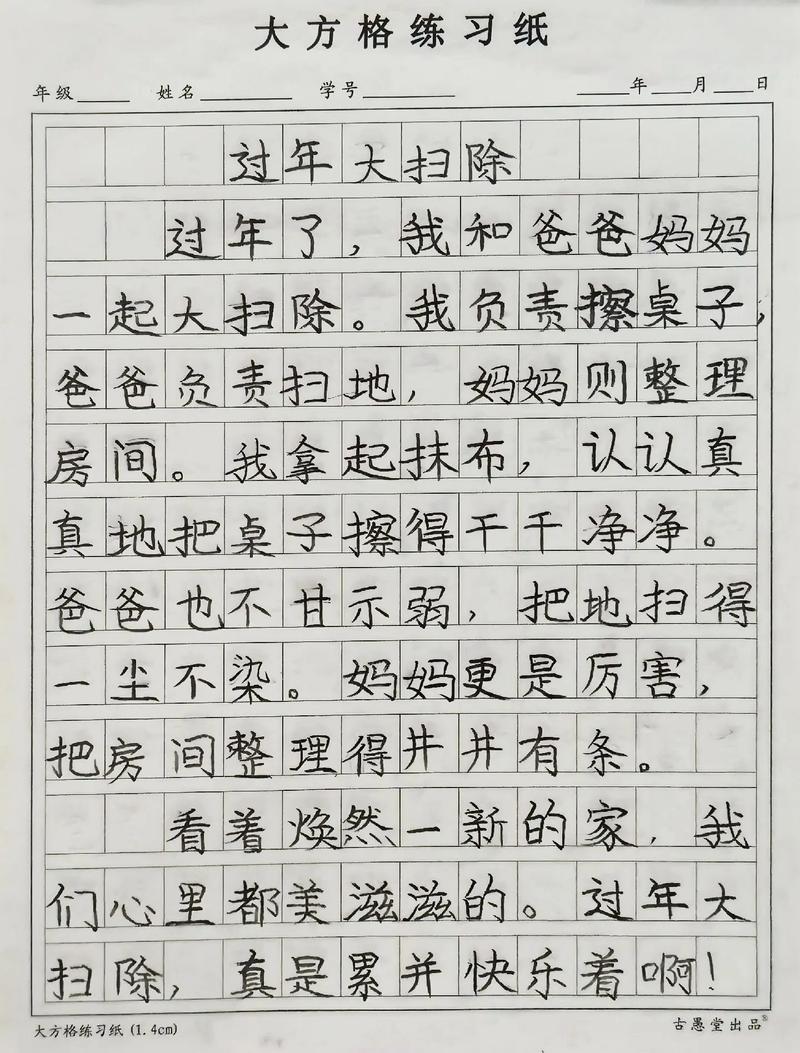 大方格练习纸
年级 姓名 学号 年 月 日
过年大扫除
过年了，我和爸爸妈妈
一起大扫除。我负责擦桌子，
爸爸负责扫地，妈妈则整理
房间。我拿起抹布，认认真
真地把桌子擦得干干净净。
爸爸也不甘示弱，把地扫得
一尘不染。妈妈更是厉害，
把房间整理得井井有条。
看着焕然一新的家，我
们心里都美滋滋的。过年大
扫除，真是累并快乐着啊！
大方格练习纸(1.4cm) 古愚堂出品®